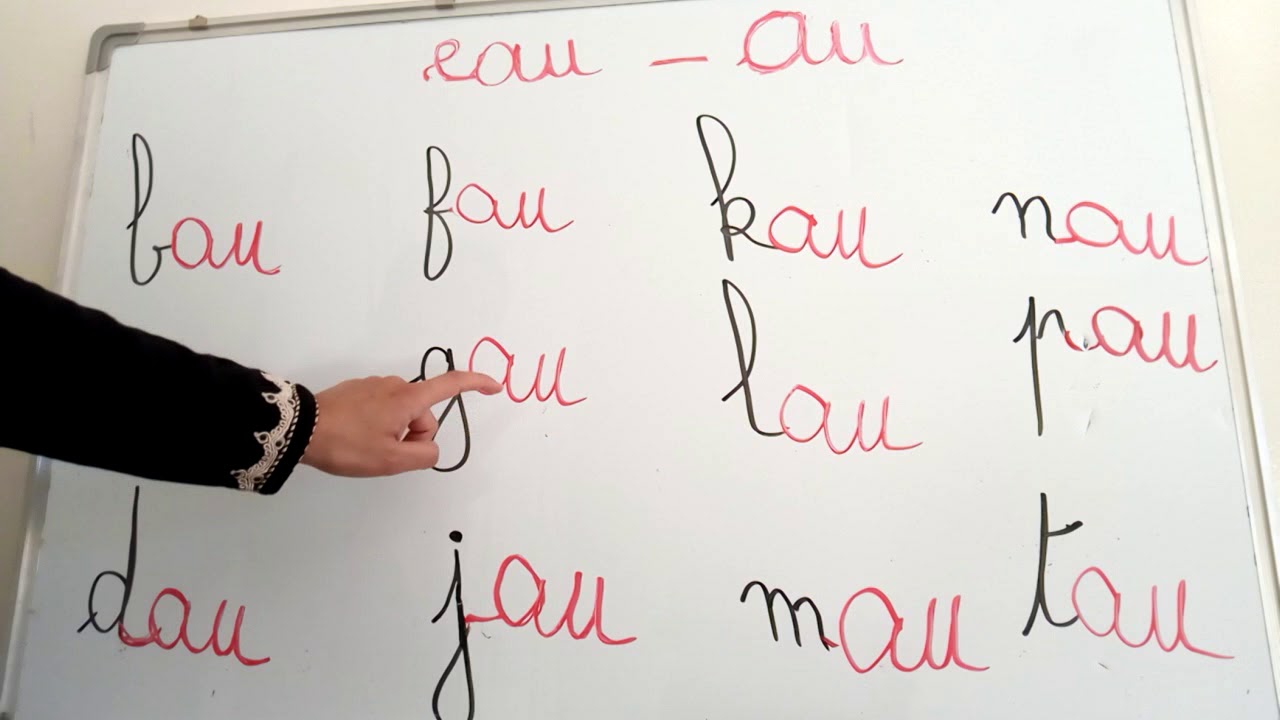 eau - au
bau fau kau nau
gau lau pau
dau jau mau tau